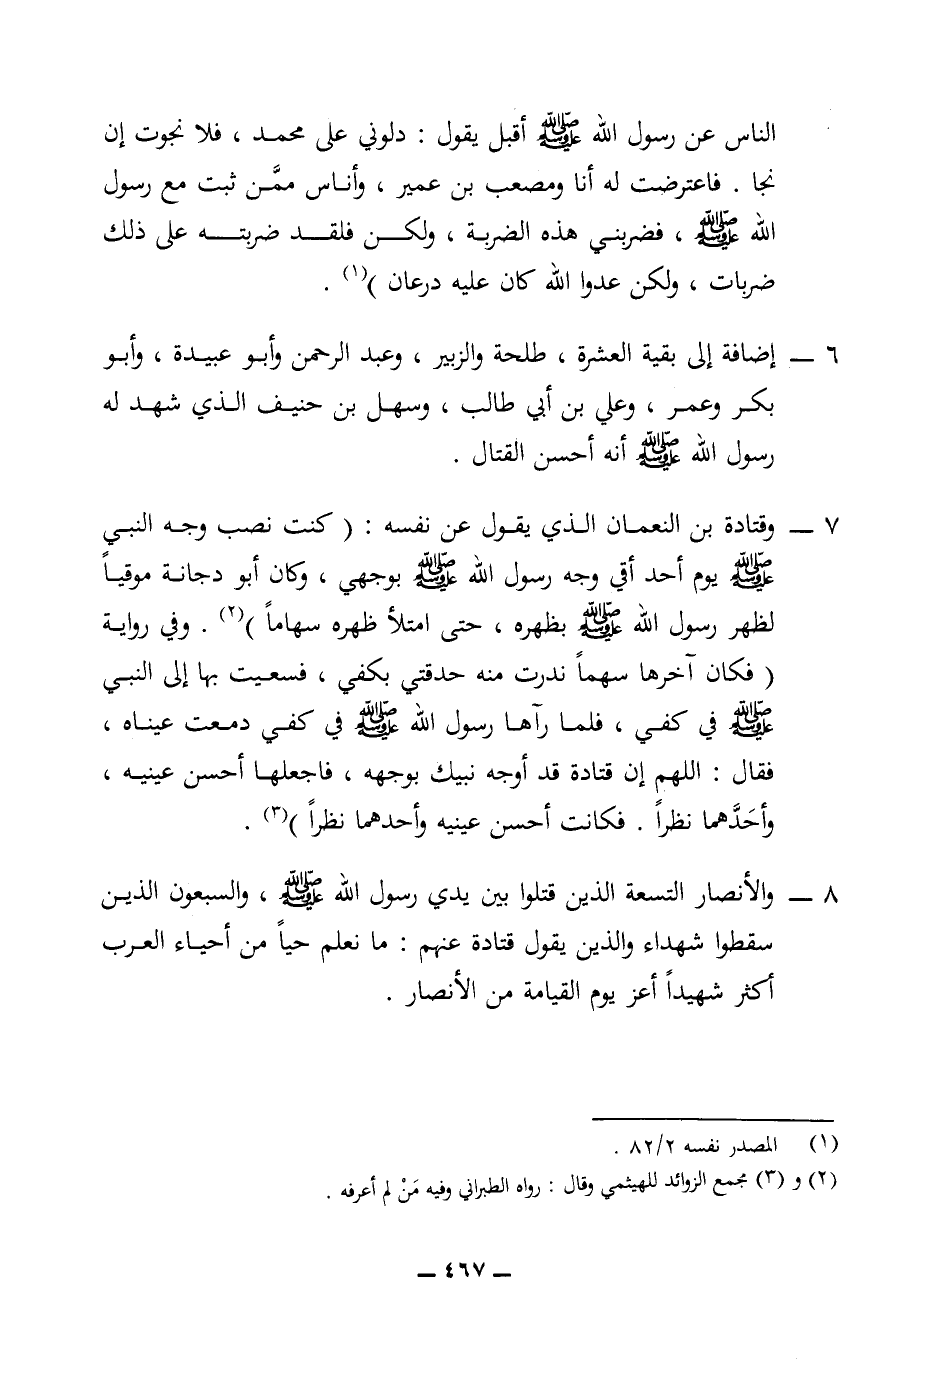 الناس عن رسول الله ﷺ أقبل يقول : دلوني على محمد ، فلا نجوت إن
نجا . فاعترضت له أنا ومصعب بن عمير ، وأناس ممَّن ثبت مع رسول
الله ﷺ ، فضربني هذه الضربة ، ولكن فلقد ضربته على ذلك
ضربات ، ولكن عدوا الله كان عليه درعان )(١) .
٦ ــ إضافة إلى بقية العشرة ، طلحة والزبير ، وعبد الرحمن وأبو عبيدة ، وأبو
بكر وعمر ، وعلي بن أبي طالب ، وسهل بن حنيف الذي شهد له
رسول الله ﷺ أنه أحسن القتال .
٧ ــ وقتادة بن النعمان الذي يقول عن نفسه : ( كنت نصب وجه النبي
ﷺ يوم أحد أقي وجه رسول الله ﷺ بوجهي ، وكان أبو دجانة موقياً
لظهر رسول الله ﷺ بظهره ، حتى امتلأ ظهره سهاماً )(٢) . وفي رواية
( فكان آخرها سهماً ندرت منه حدقتي بكفي ، فسعيت بها إلى النبي
ﷺ في كفي ، فلما رآها رسول الله ﷺ في كفي دمعت عيناه ،
فقال : اللهم إن قتادة قد أوجه نبيك بوجهه ، فاجعلها أحسن عينيه ،
وأحَدَّهما نظراً . فكانت أحسن عينيه وأحدهما نظراً )(٣) .
٨ ــ والأنصار التسعة الذين قتلوا بين يدي رسول الله ﷺ ، والسبعون الذين
سقطوا شهداء والذين يقول قتادة عنهم : ما نعلم حياً من أحياء العرب
أكثر شهيداً أعز يوم القيامة من الأنصار .
(١) المصدر نفسه ٨٢/٢ .
(٢) و (٣) مجمع الزوائد للهيثمي وقال : رواه الطبراني وفيه مَنْ لم أعرفه .
ــ ٤٦٧ ــ